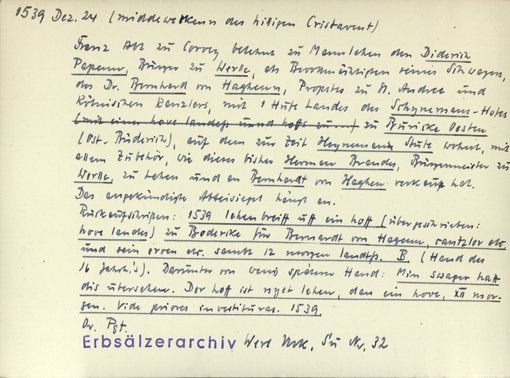 1539 Dez. 24 (middeweckenn des hilligen Cristavent)
Franz Abt zu Corvey belehnt zu Mannlehen den Diderich
Papenn, Bürger zu Werle, als Bevollmächtigten seines Schwagers,
des Dr. Bernhard von Haghenn, Propstes zu St. Andree und
Kölnischen Kanzlers, mit 1 Hufe Landes des Schynemans-Hofes
(mit einen hove landess und hoffs zu) zu Buricke Oosten
(Ost-Büderich), auf dem zur Zeit Heynemann Stute wohnt, mit
allem Zubehör, wie dieses bisher Herman Brandes, Bürgermeister zu
Werle, zu Lehen und an Bernhardt von Haghen verkauft hat.
Das angekündigte Abteisiegel hängt an.
Rückaufschriften: 1539 lehen breiff uff ein hoff (übergeschrieben:
hove landes) zu Boderike für Bernardt von Hagenn, cantzler etc.
und sein erven etc. sambt 12 morgen landtss. B. (Hand des
16 Jahrh.s). Darunter von wenig späterer Hand: Min swager hatt
dis übersehen. Der hoff ist nyet lehen, dan ein hove, XII mor-
gen. Vide priores investituras. 1539.
Or. Pgt.
Erbsälzerarchiv Werl Urk. Nr. 32